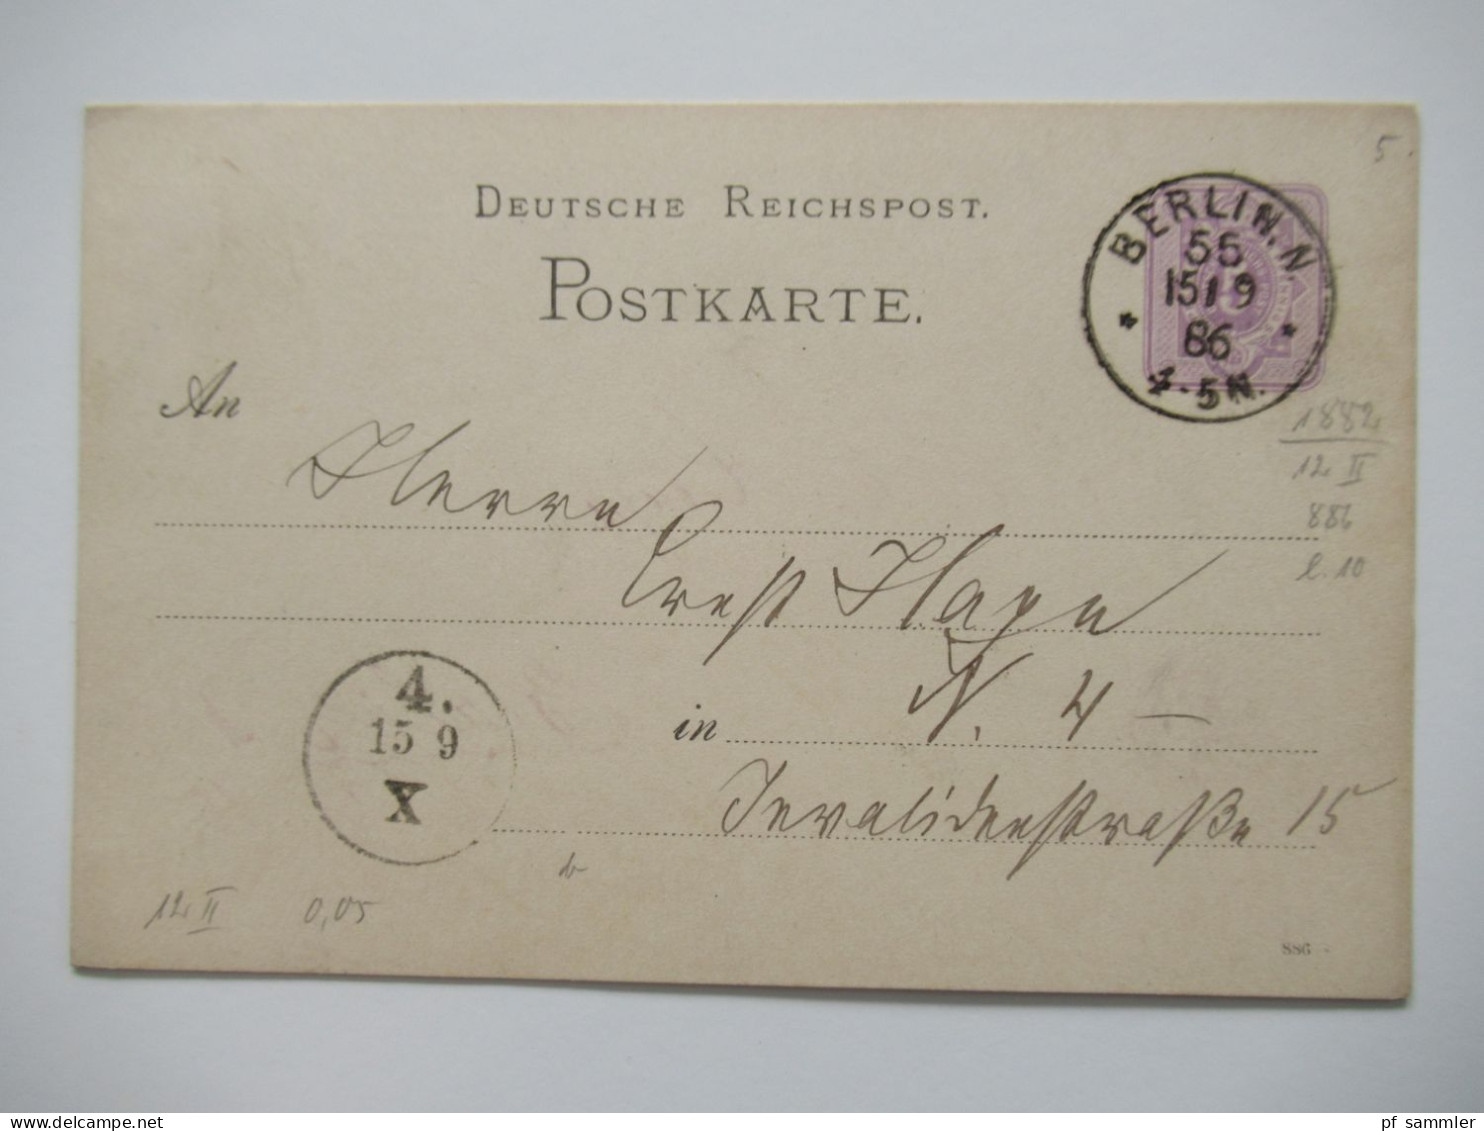 5.
DEUTSCHE REICHSPOST.
POSTKARTE.
BERLIN. N
55
15/9
86
4-5N.
1882
12 II
886
l. 10
An
Herrn
Ernst Hage
in N. 4 —
Invalidenstraße 15
4.
15 9
X
12 II 0,05
886
pf sammler